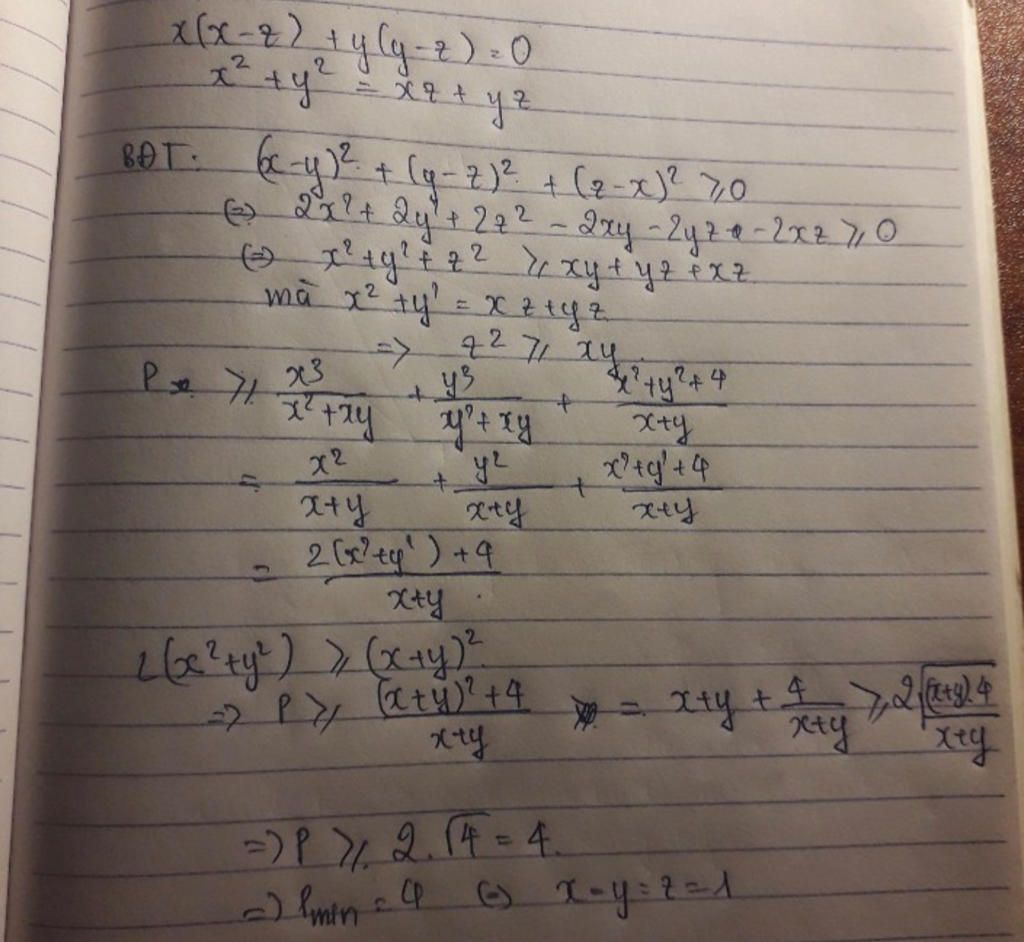 x(x-z) + y(y-z) = 0
x² + y² = xz + yz
BĐT: (x-y)² + (y-z)² + (z-x)² ⩾ 0
(=) 2x² + 2y² + 2z² - 2xy - 2yz - 2xz ⩾ 0
(=) x² + y² + z² ⩾ xy + yz + xz
mà x² + y² = xz + yz
=> z² ⩾ xy.
P ⩾ x³/(x²+xy) + y³/(y²+xy) + (x²+y²+4)/(x+y)
= x²/(x+y) + y²/(x+y) + (x²+y²+4)/(x+y)
= (2(x²+y²)+4)/(x+y).
2(x²+y²) ⩾ (x+y)².
=> P ⩾ ((x+y)²+4)/(x+y) = x+y + 4/(x+y) ⩾ 2√((x+y).4/(x+y))
=> P ⩾ 2.√4 = 4.
=> Pmin = 4 (=) x = y = z = 1